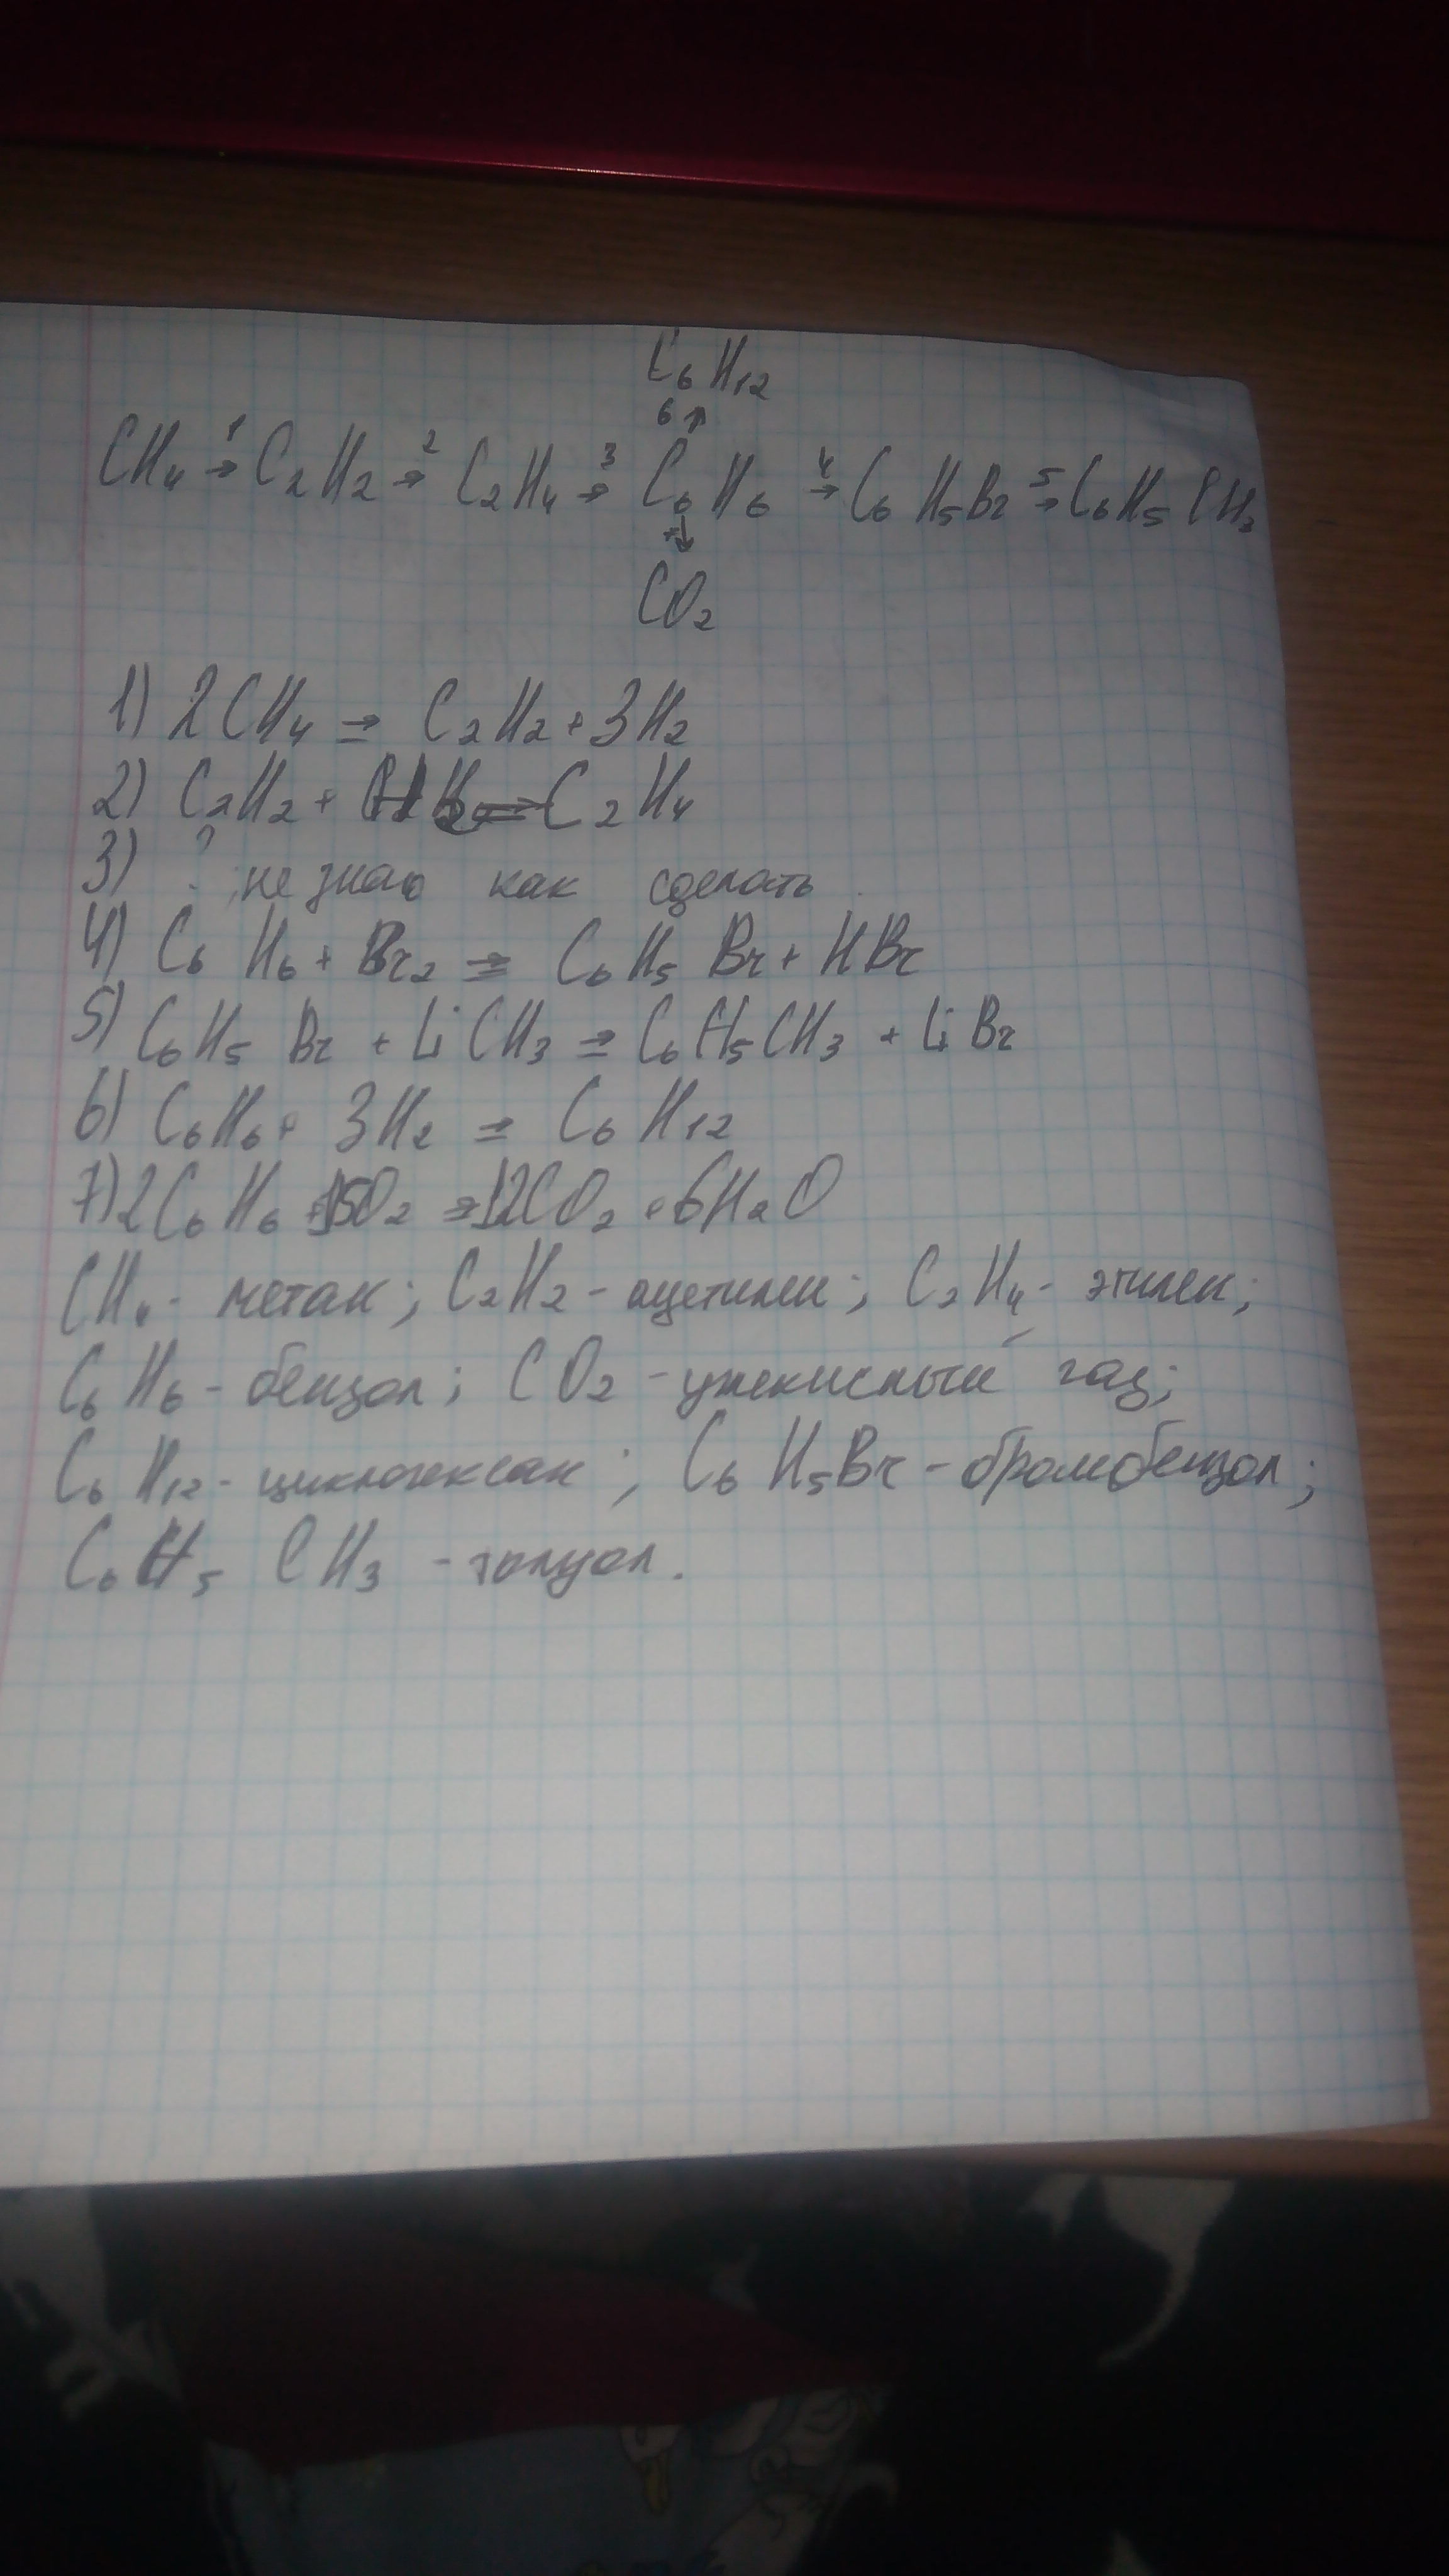 C₆H₁₂
6 ↑
CH₄ →¹ C₂H₂ →² C₂H₄ →³ C₆H₆ →⁴ C₆H₅Br →⁵ C₆H₅CH₃
7 ↓
CO₂
1) 2CH₄ ⇒ C₂H₂ + 3H₂
2) C₂H₂ + H₂ ⇒ C₂H₄
3) ? не знаю как сделать
4) C₆H₆ + Br₂ ⇒ C₆H₅Br + HBr
5) C₆H₅Br + LiCH₃ ⇒ C₆H₅CH₃ + LiBr
6) C₆H₆ + 3H₂ ⇒ C₆H₁₂
7) 2C₆H₆ + 15O₂ ⇒ 12CO₂ + 6H₂O
CH₄ - метан; C₂H₂ - ацетилен; C₂H₄ - этилен;
C₆H₆ - бензол; CO₂ - углекислый газ;
C₆H₁₂ - циклогексан; C₆H₅Br - бромбензол;
C₆H₅CH₃ - толуол.